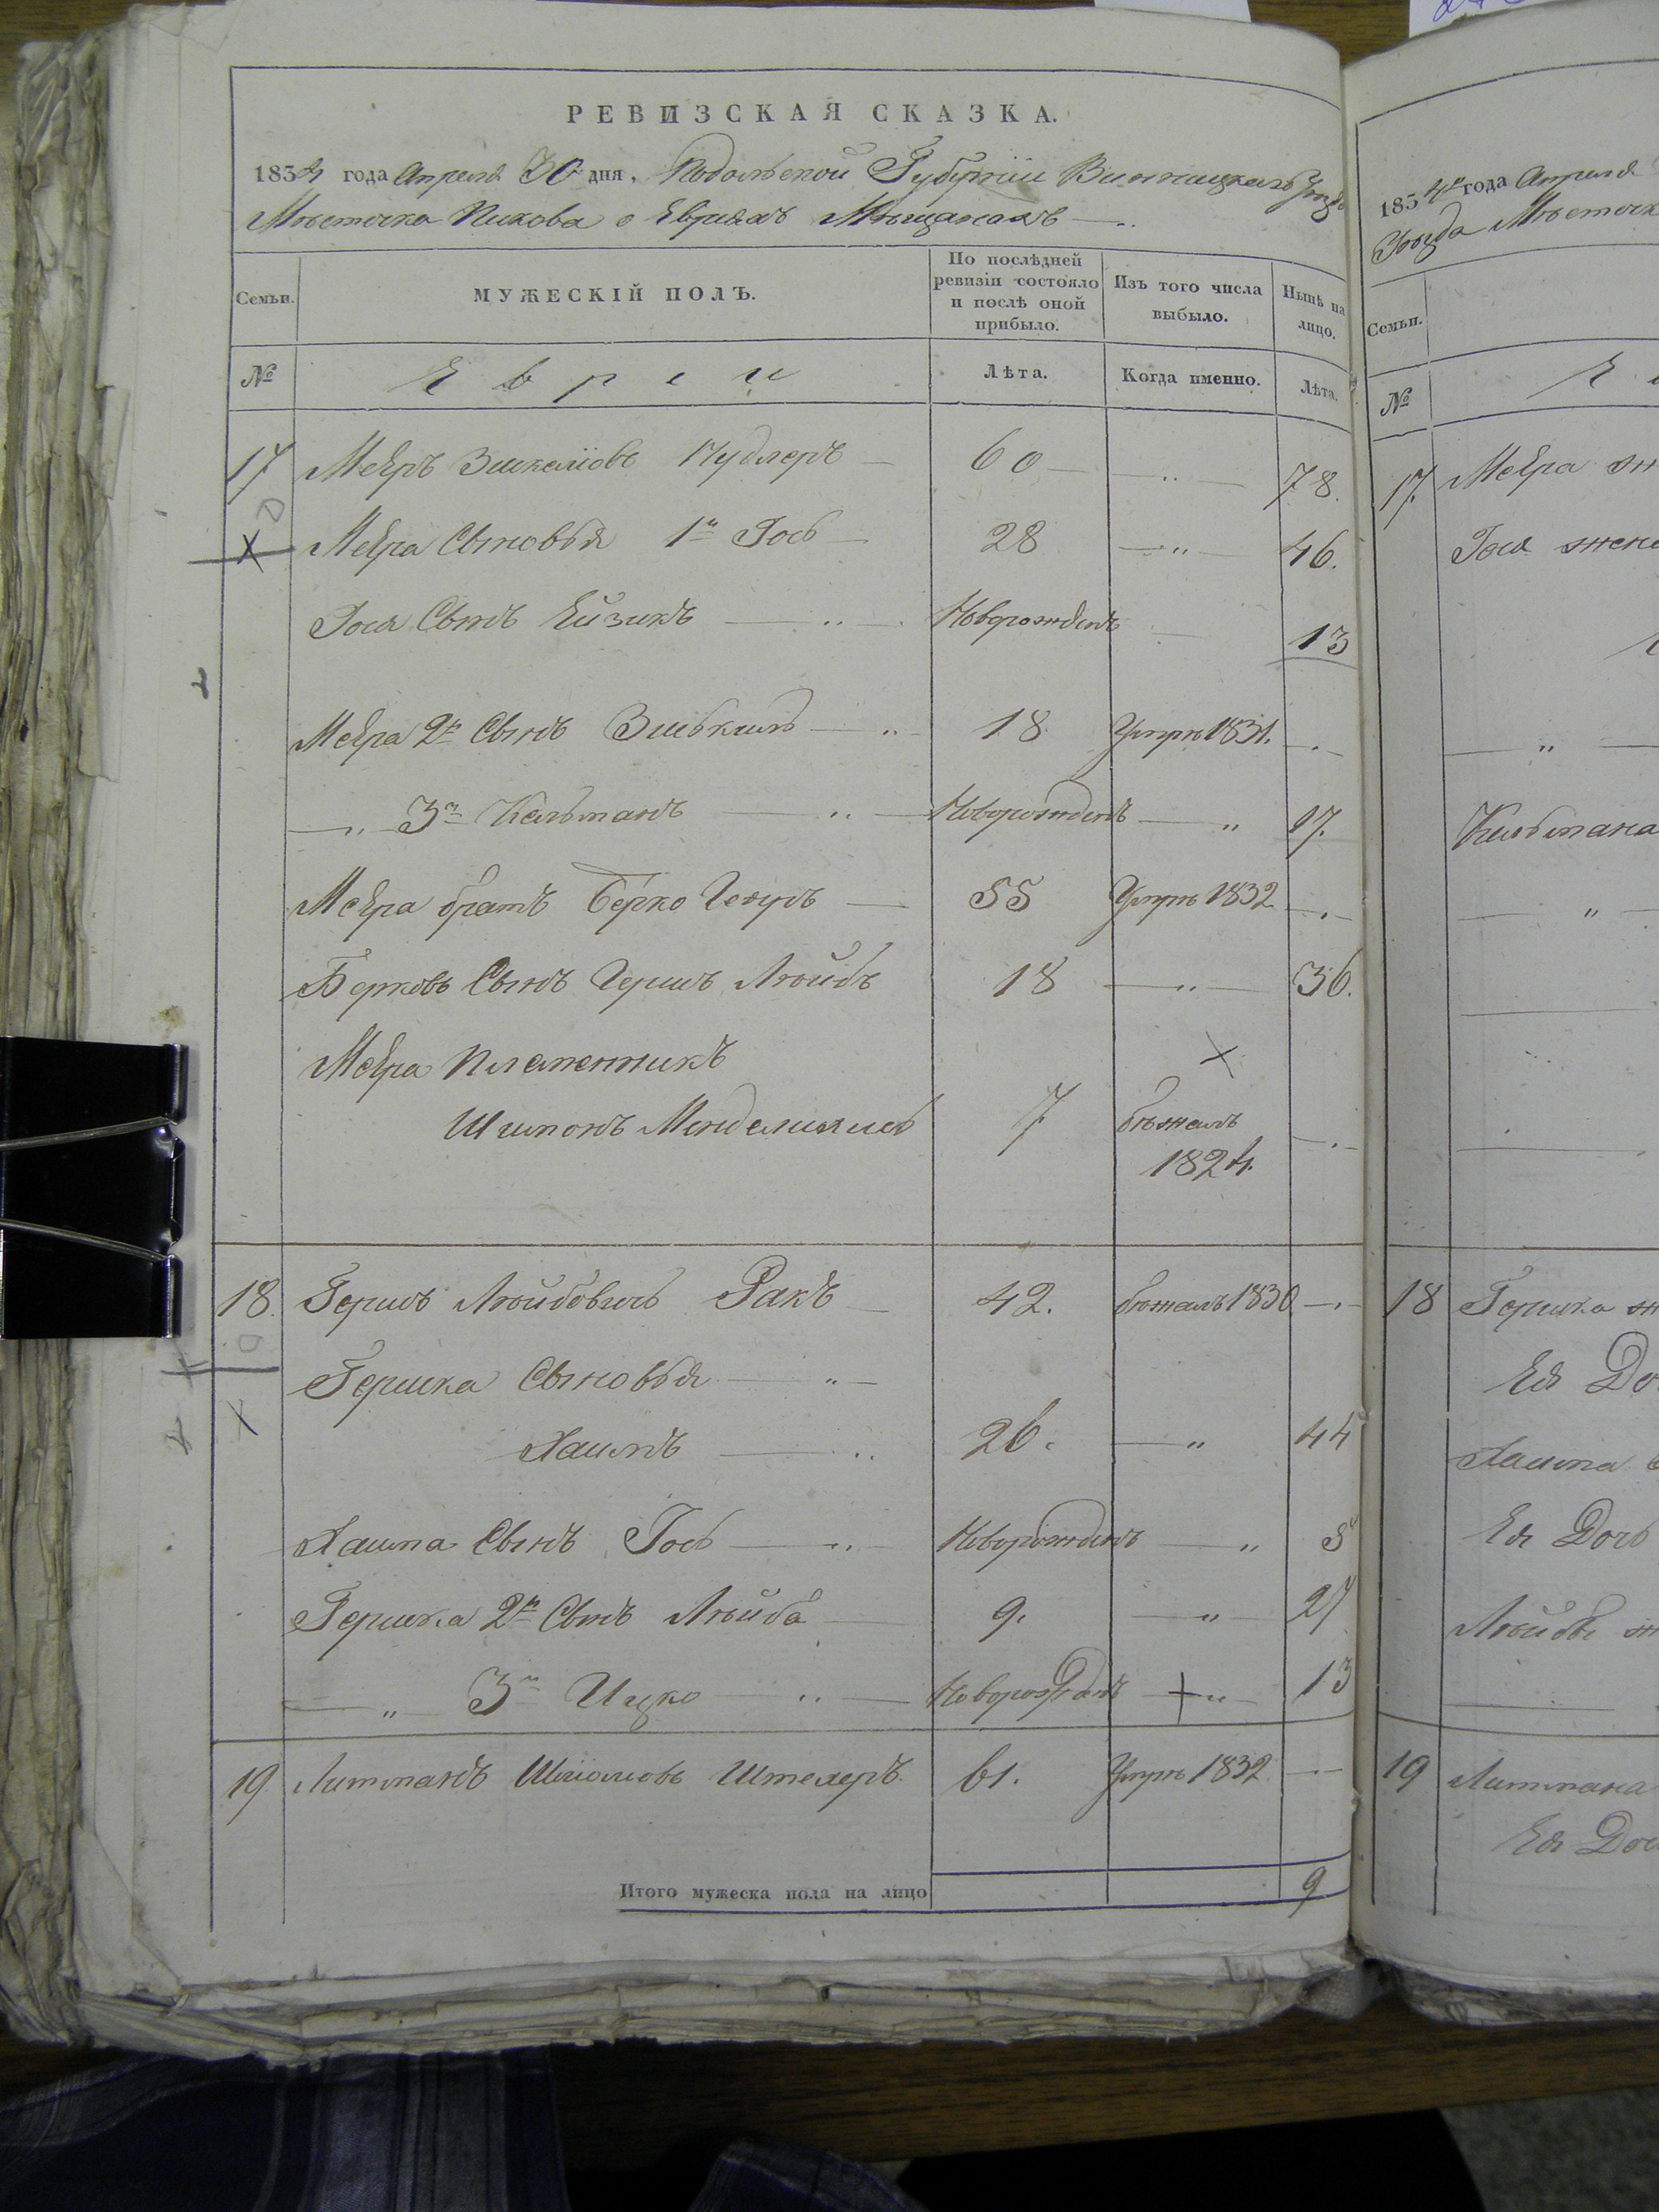 РЕВИЗСКАЯ СКАЗКА.
1834 года Апреля 30 дня, Подольской Губерніи Винницкаго Уезда
Мѣстечка Пикова о Евреяхъ Мѣщанахъ
Семьи.
МУЖЕСКІЙ ПОЛЪ.
По послѣдней ревизіи состояло и послѣ оной прибыло.
Изъ того числа выбыло.
Нынѣ на лицо.
№
Евреи
Лѣта.
Когда именно.
Лѣта.
17 Меѣръ Нудлеръ 60 — 78.
Меѣра Сыновья 1й Іось 28 — 46.
Іося Сынъ Ейзикъ Новорожденъ 13
Меѣра 2й Сынъ 18 Умръ 1831.
— 3й Кельманъ Новорожденъ — 17.
Меѣра братъ Берко 55 Умръ 1832
Берковъ Сынъ Гершъ Лейбъ 18 — 36.
Меѣра Племенникъ
Шимонъ 7 бѣжалъ
1824.
18. Гершъ Лейбовичъ Ракъ 42. бѣжалъ 1830
Гершка Сыновья
Хаимъ 26. — 44
Хаима Сынъ Іось Новорожденъ — 5
Гершка 2й Сынъ Лейба 9. — 27
— 3й Ицко Новорожденъ — 13
19 Литманъ Штелеръ 61. Умръ 1832
Итого мужеска пола на лицо 9
1834го года Апреля
Уѣзда Мѣстечк
Семьи.
№
17. Меѣра
Іося жена
18 Гершка
Ея До
Хаима
Ея Дочь
Лейбы
19 Литмана
Ея Доч